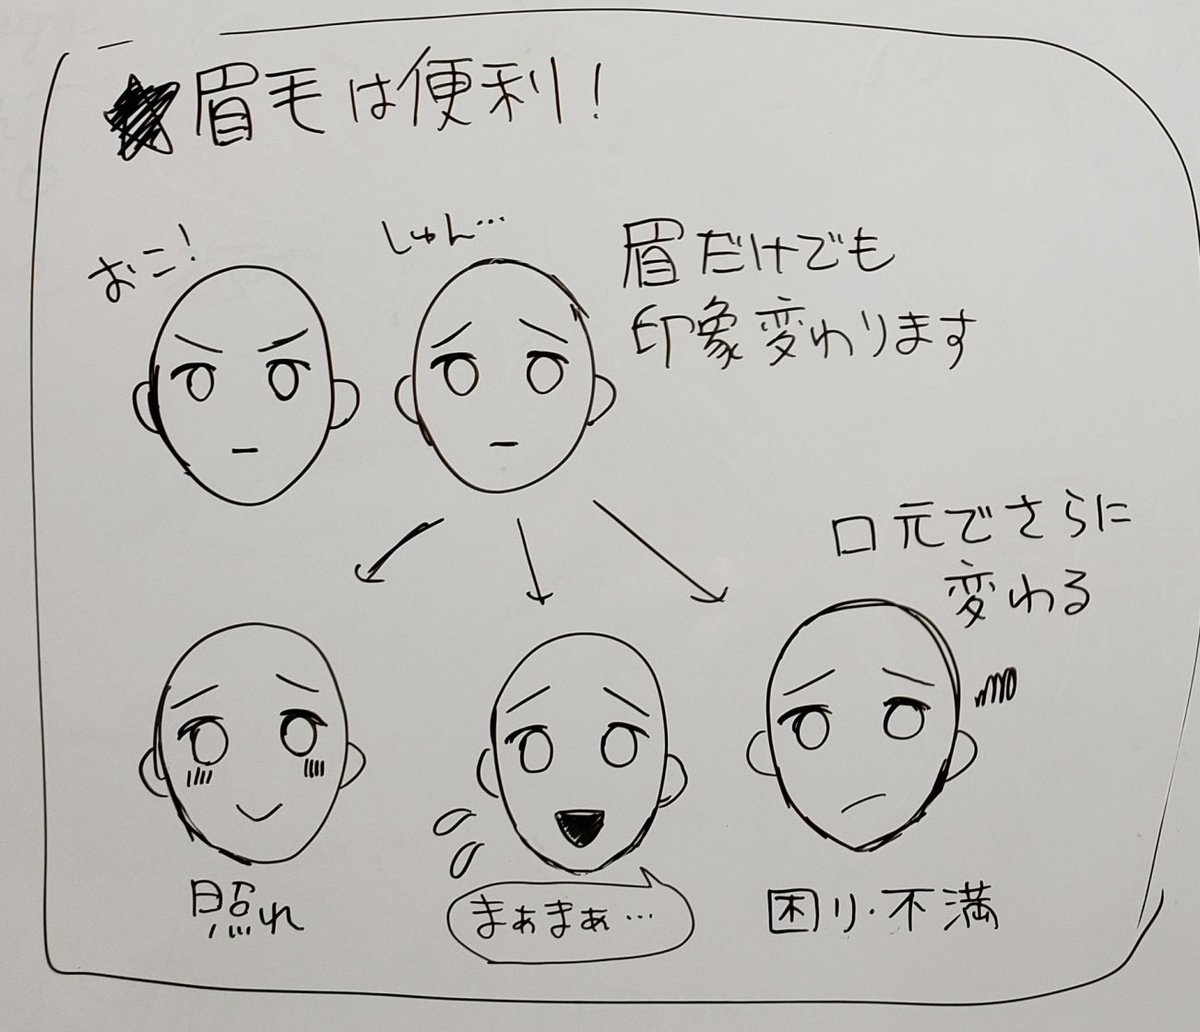 ★眉毛は便利!
おこ!
しゅん…
眉だけでも
印象変わります
口元でさらに
変わる
照れ
まぁまぁ…
困り・不満